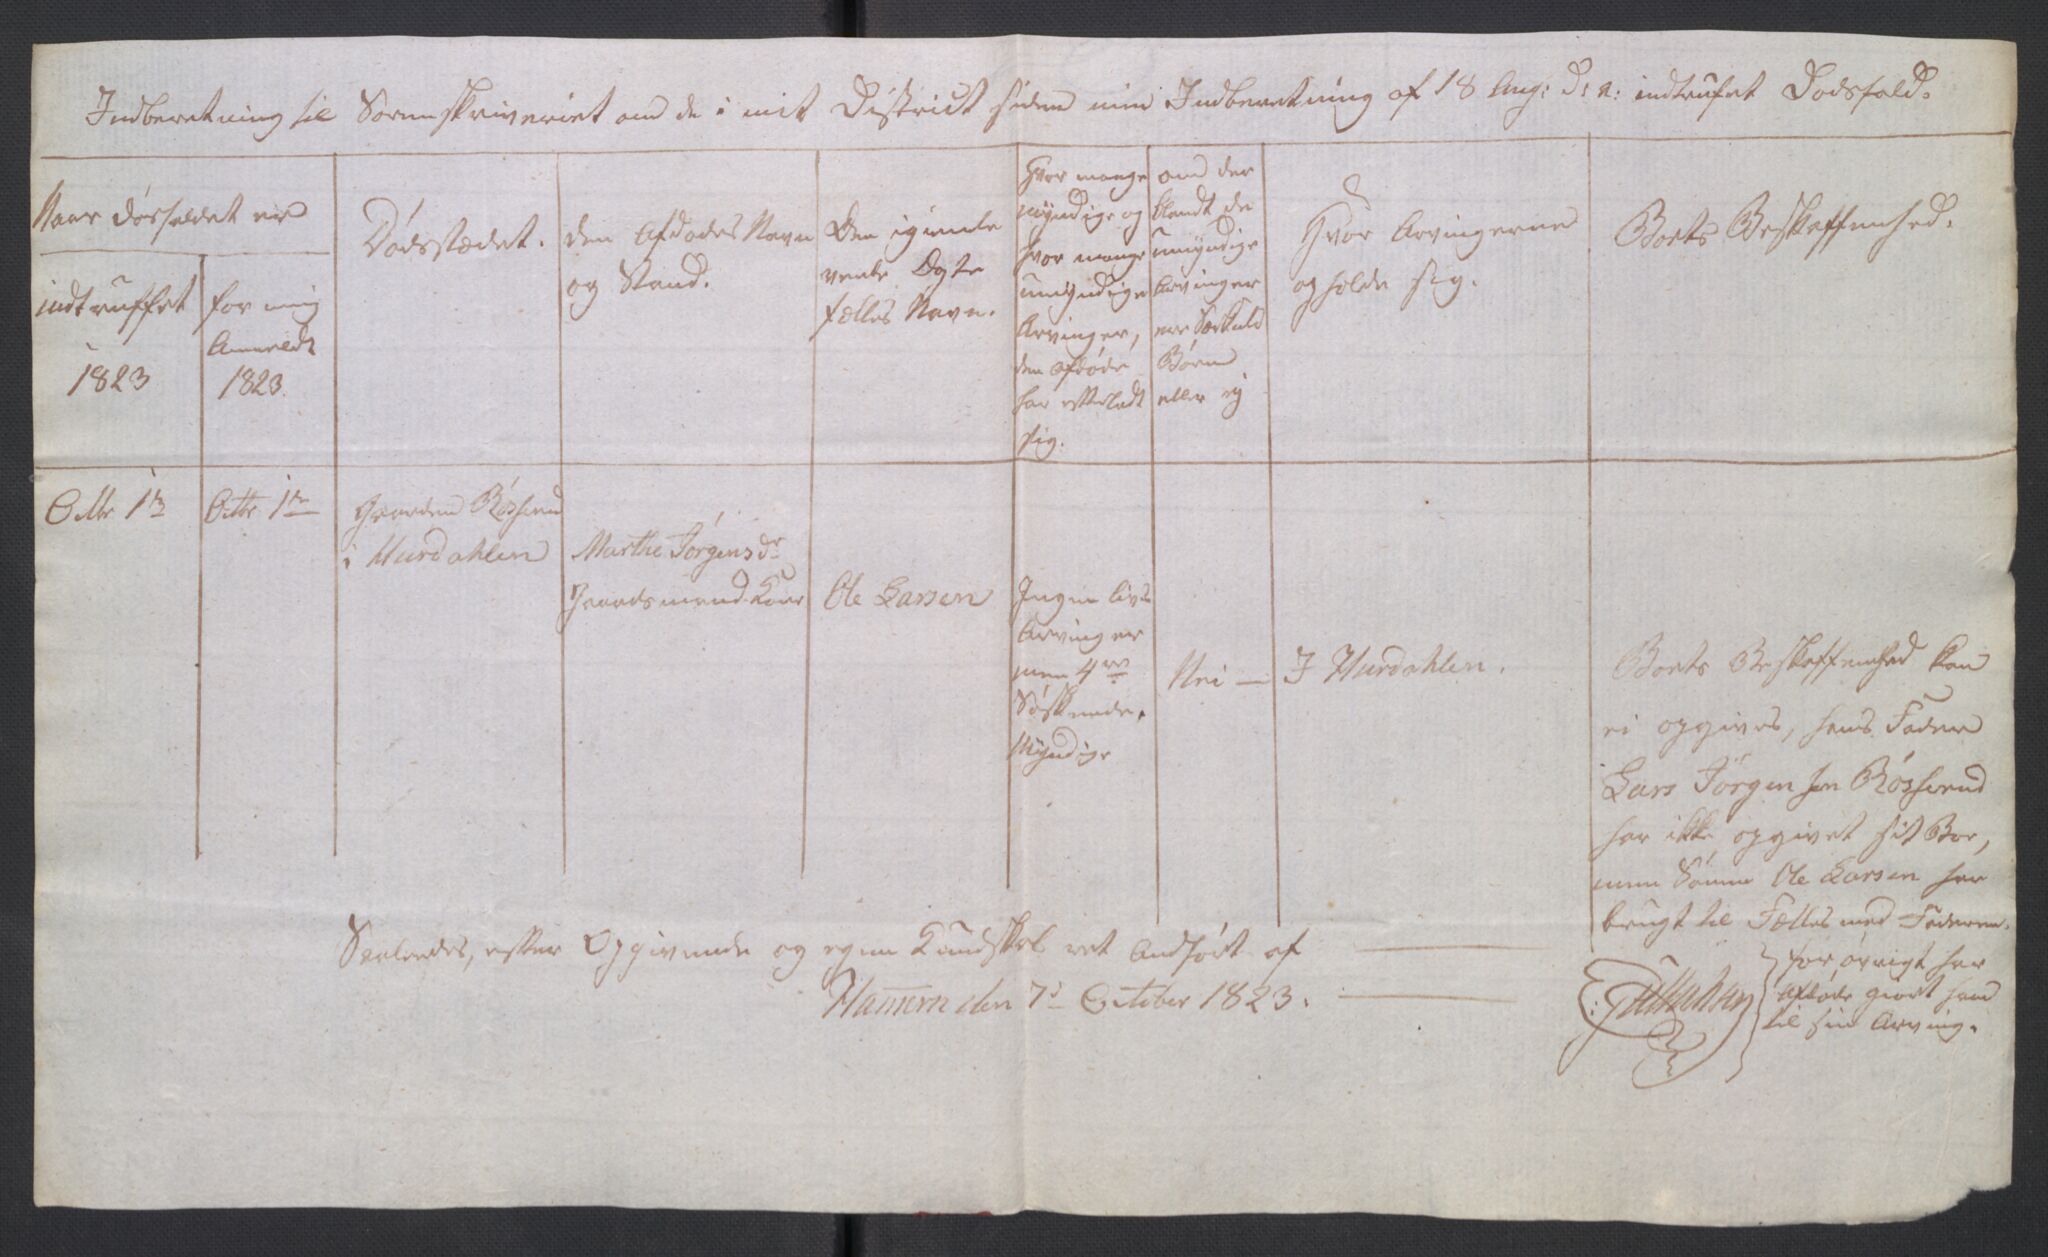 Indberetning til Sorenskriveriet om de i mit District siden min Indberetning af 18 Aug: d: A: indtrufet Dødsfald.
Naar dødsfaldet er
indtruffet
1823
for mig
Anmeldt
1823.
Dødsstædet.
den Afdødes Navn
og Stand.
Den igienle
vende Ægte
fælles Navn.
Hvor mange
myndige og
hvor mange
umyndige
Arvinger,
den afdøde
har efterladt
sig.
om der
blandt de
umyndige
Arvinger
ere Særkuld
Børn
eller ej
Hvor Arvingerne
opholde sig.
Boets Beskaffenhed.
Octbr 1te
Octbr 1te
Gaarden Røsherud
i Hurdahlen
Marthe Jørgensdr
Gaardmand Kone
Ole Larsen
Ingen livs
Arvinger
men 4re
Søskende.
Myndige
Nei —
I Hurdahlen.
Boets Beskaffenhed kan
ei opgives, hans Fader
Lars Jørgensen Røsherud
har ikke opgivet sit Boe,
men Sønnen Ole Larsen har
brugt til Fælles med Faderen.
for øvrigt har
Afdøde giort ham
til sin Arving.
Saaledes, efter Opgivende og egen Kundskab ret Anført af
Hammern den 7de October 1823.